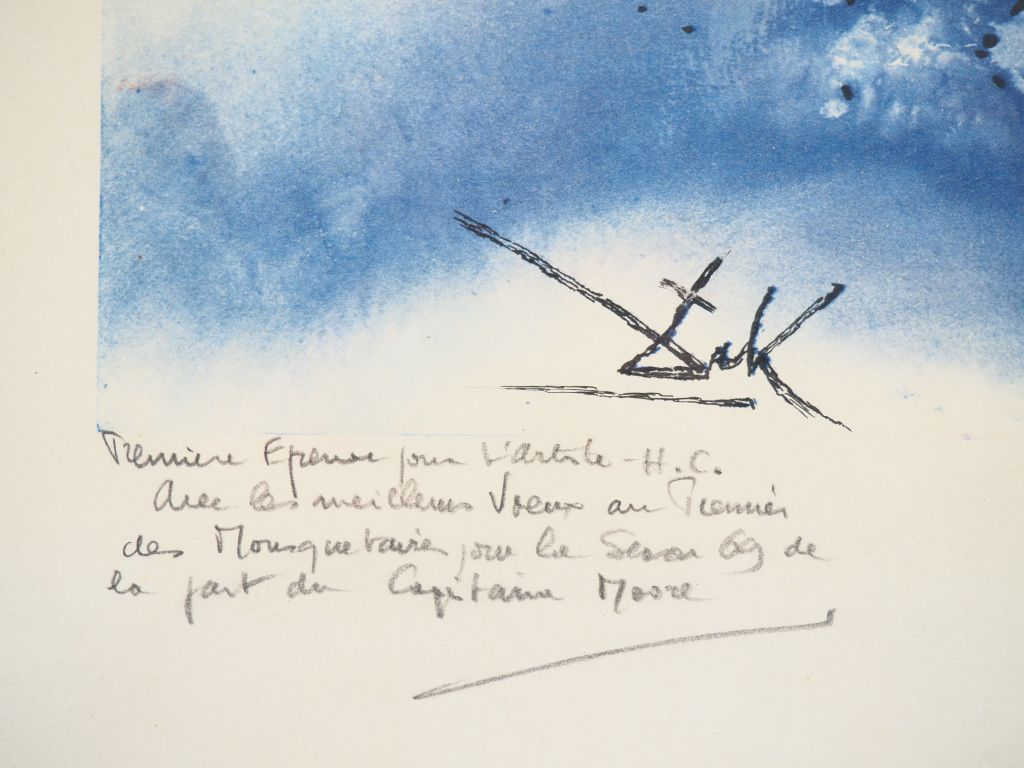 Première Epreuve pour L'artiste - H.C.
Avec les meilleurs Voeux au Premier
des Mousquetaires pour le 69 de
la part du Capitaine Moore